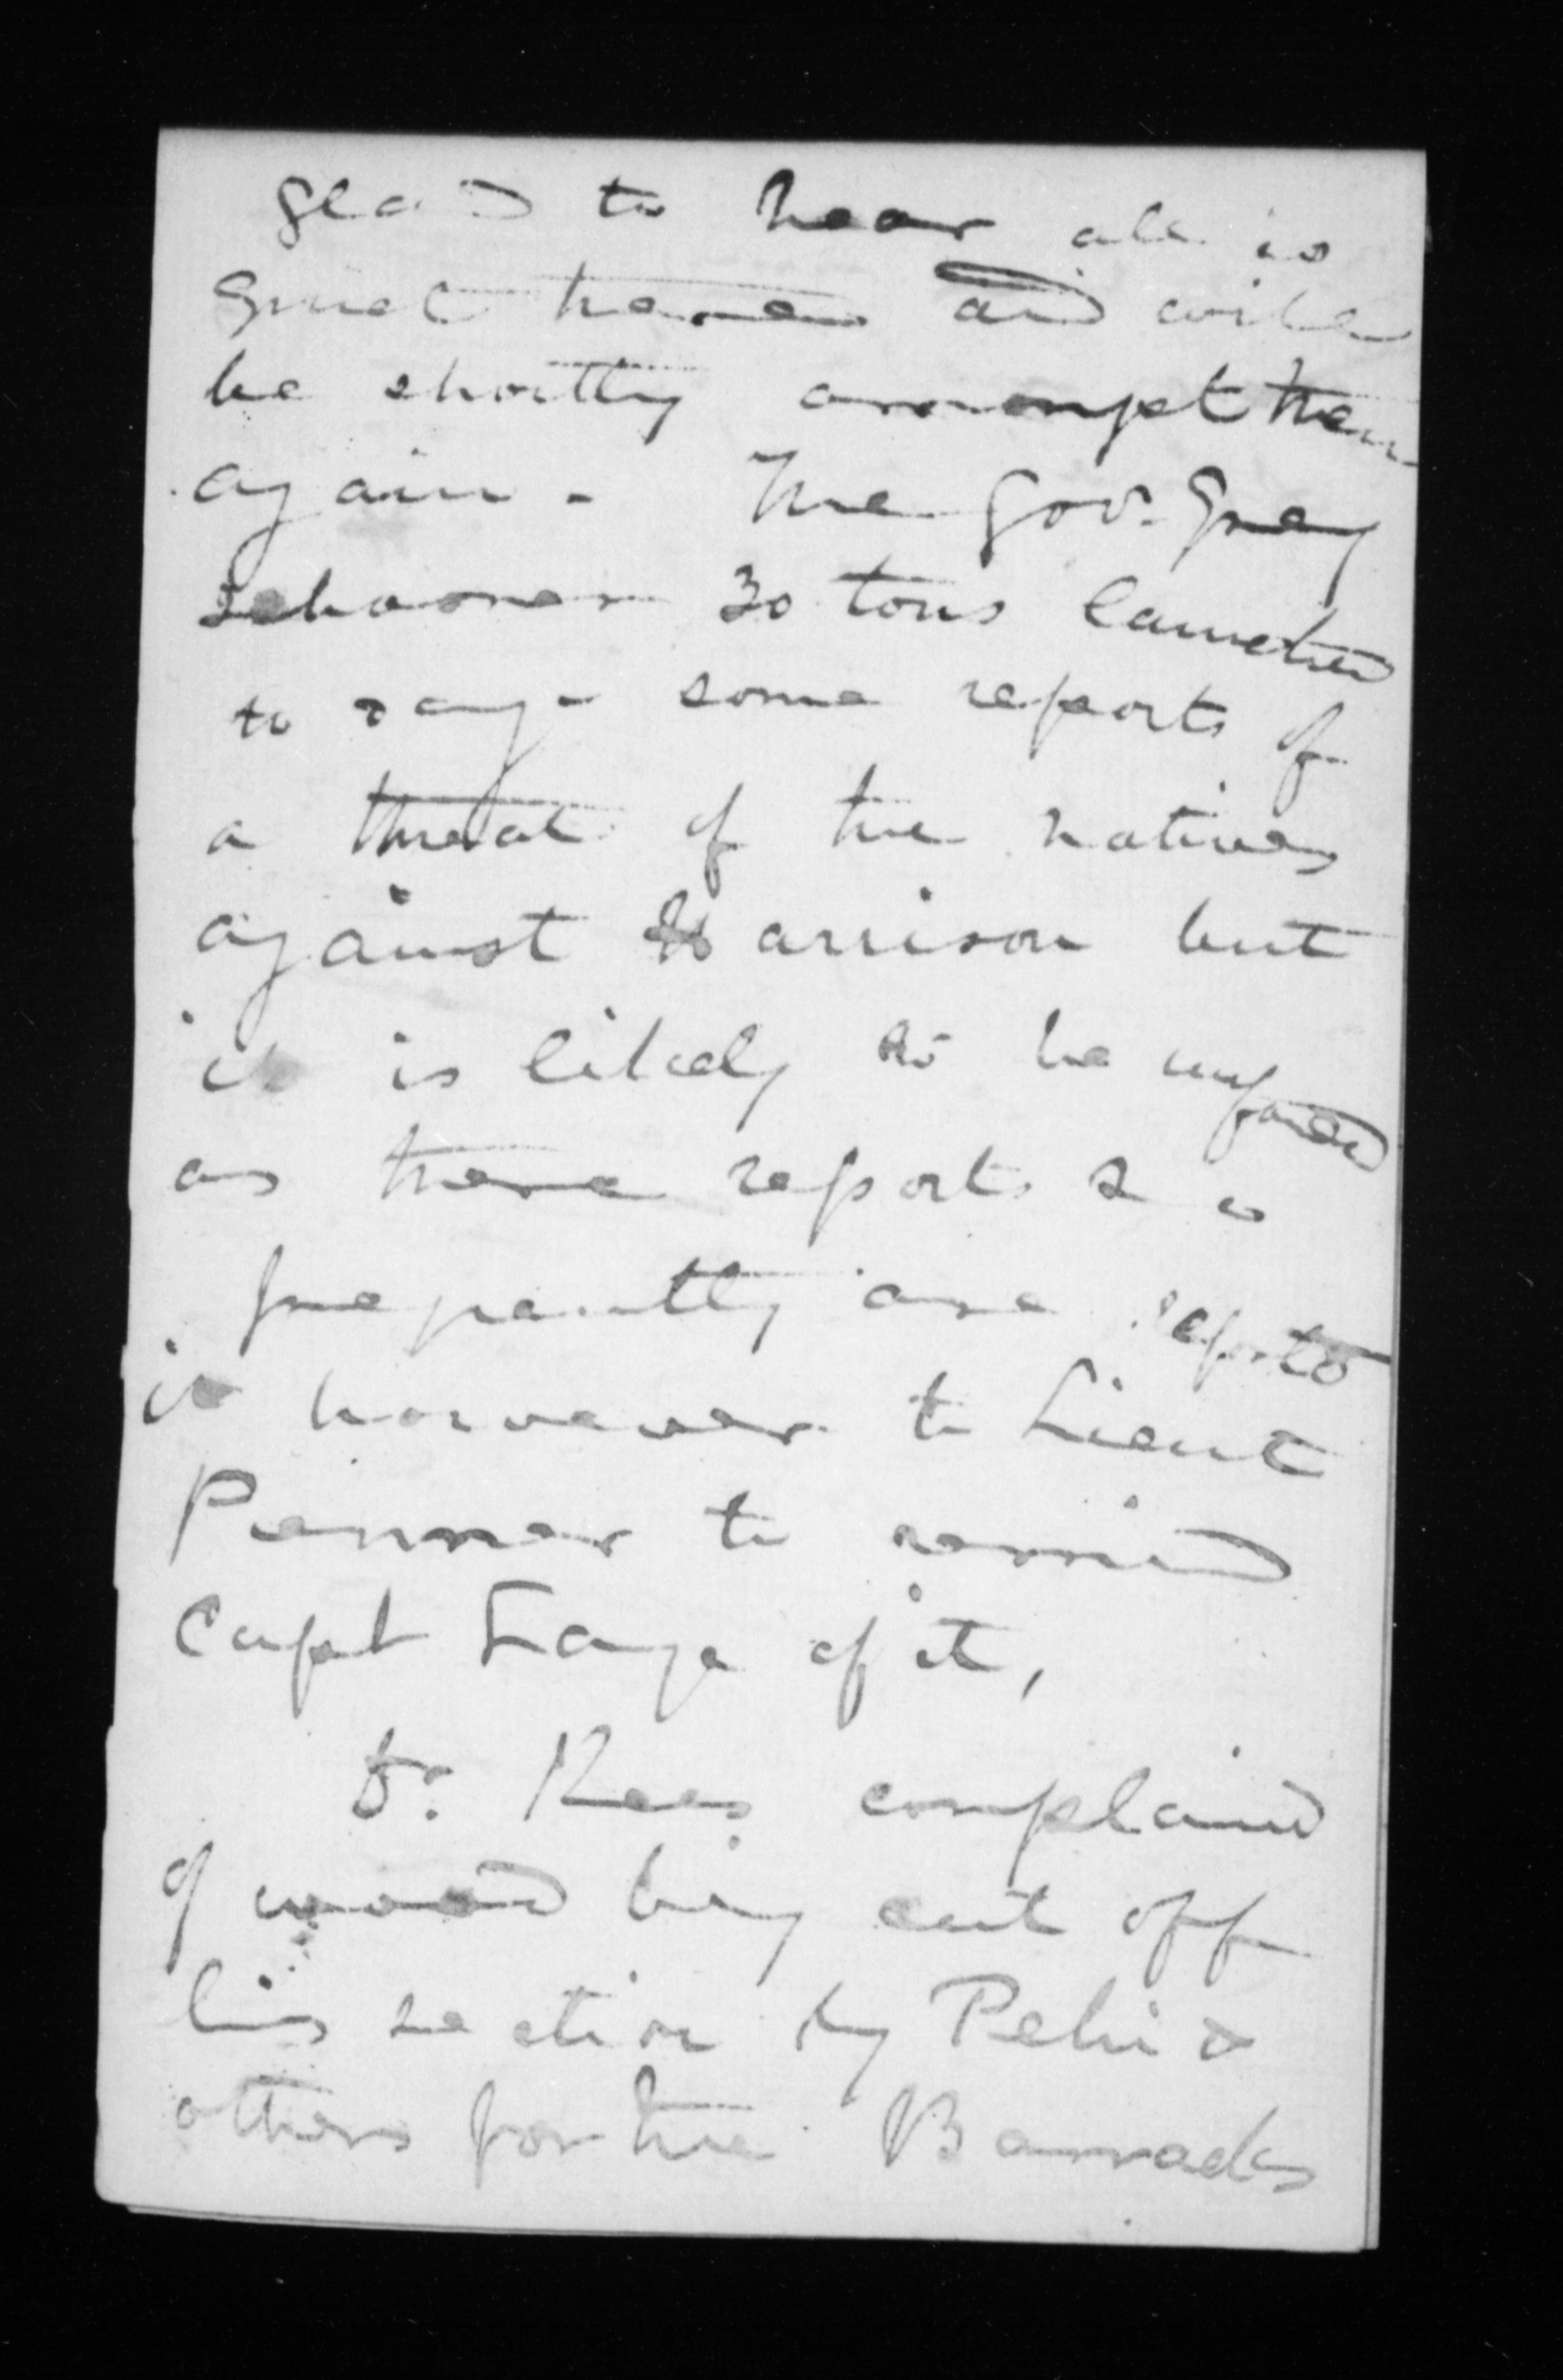 glad to hear all is
quiet there and will
be shortly amongst them
again - The Gov. Grey
schooner 30 tons launched
to day - some reports of
a threat of the natives
against Harrison but
it is likely to be unfounded
as these reports so
frequently are reported
it however to Lieut
Penner to remind
Capt Laye of it,
Dr Rees complained
of wood being cut off
his section by Pehi &
others for the Barracks